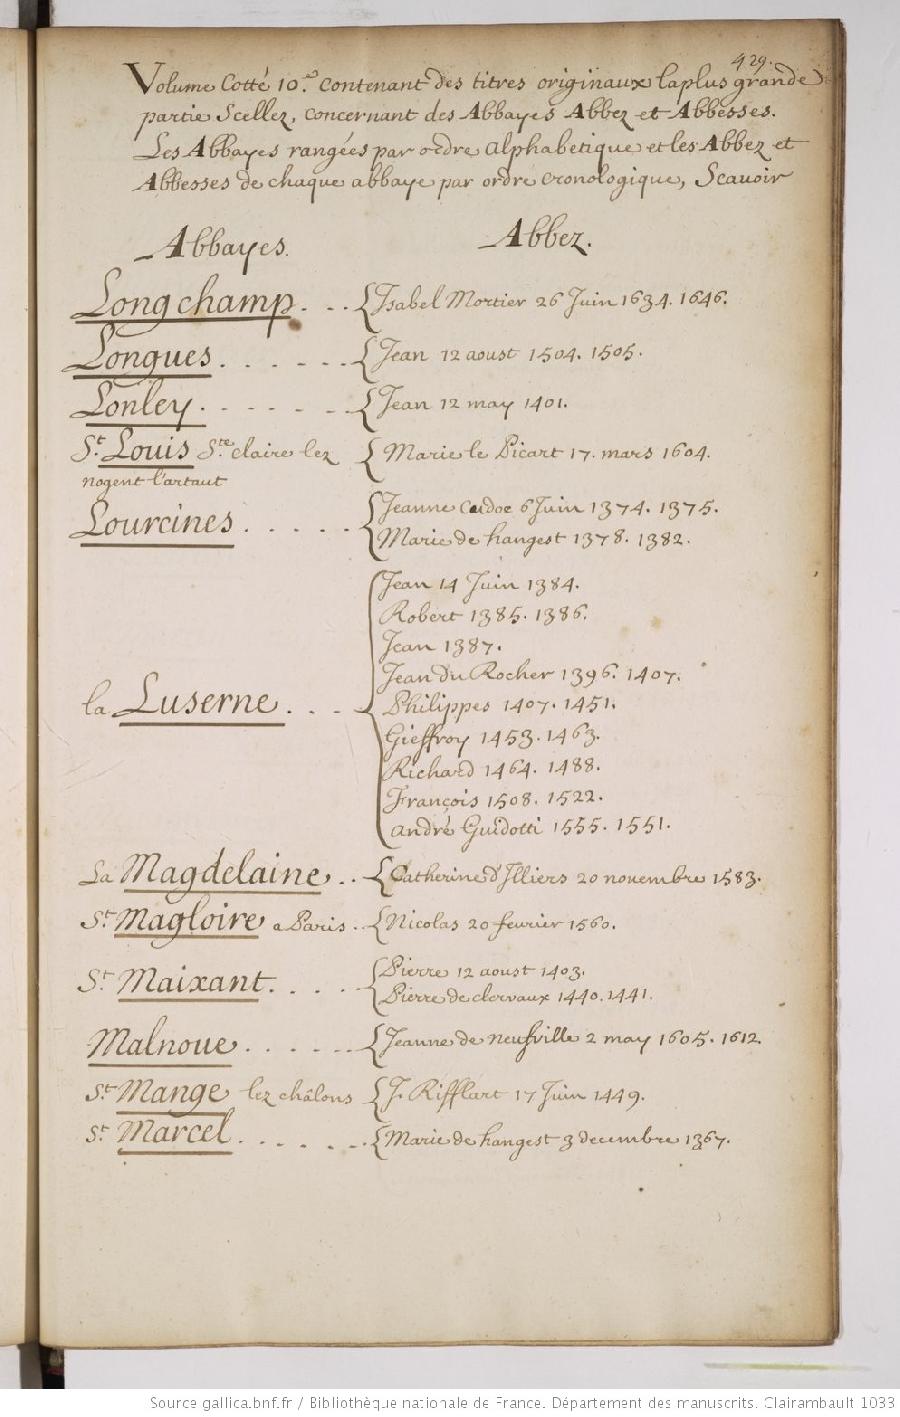 429.
Volume Cotté 10.e contenant des titres originaux la plus grande
partie Scellez, concernant des Abbayes Abbez et Abbesses.
Les Abbayes rangées par ordre alphabetique et les Abbez et
Abbesses de chaque abbaye par ordre cronologique, Scauoir
Abbayes. Abbez.
Longchamp. . . { Isabel Mortier 26 Juin 1634. 1646.
Longues . . . . . . { Jean 12 aoust 1504. 1505.
Lonley . . . . . . . { Jean 12 may 1401.
St. Louis Ste claire lez { Marie le Picart 17. mars 1604.
nogent l'artaut
Lourcines . . . . . { Jeanne 6 Juin 1374. 1375.
Marie de hangest 1378. 1382.
{ Jean 14 Juin 1384.
Robert 1385. 1386.
Jean 1387.
Jean du Rocher 1396. 1407.
la Luserne . . . Philippes 1407. 1451.
Gieffroy 1453. 1463.
Richard 1464. 1488.
François 1508. 1522.
andré Guidotti 1555. 1551.
La Magdelaine . . { Catherine d'Illiers 20 novembre 1583.
St. Magloire a Paris . { Nicolas 20 feurier 1560.
St. Maixant . . . . { Pierre 12 aoust 1403.
Pierre de clervaux 1440. 1441.
Malnoue . . . . . . { Jeanne de neufville 2 may 1605. 1612.
St. Mange lez châlons { J. Rifflart 17 Juin 1449.
St. Marcel . . . . . . . { Marie de hangest 3 decembre 1367.
Source gallica.bnf.fr / Bibliothèque nationale de France. Département des manuscrits. Clairambault 1033